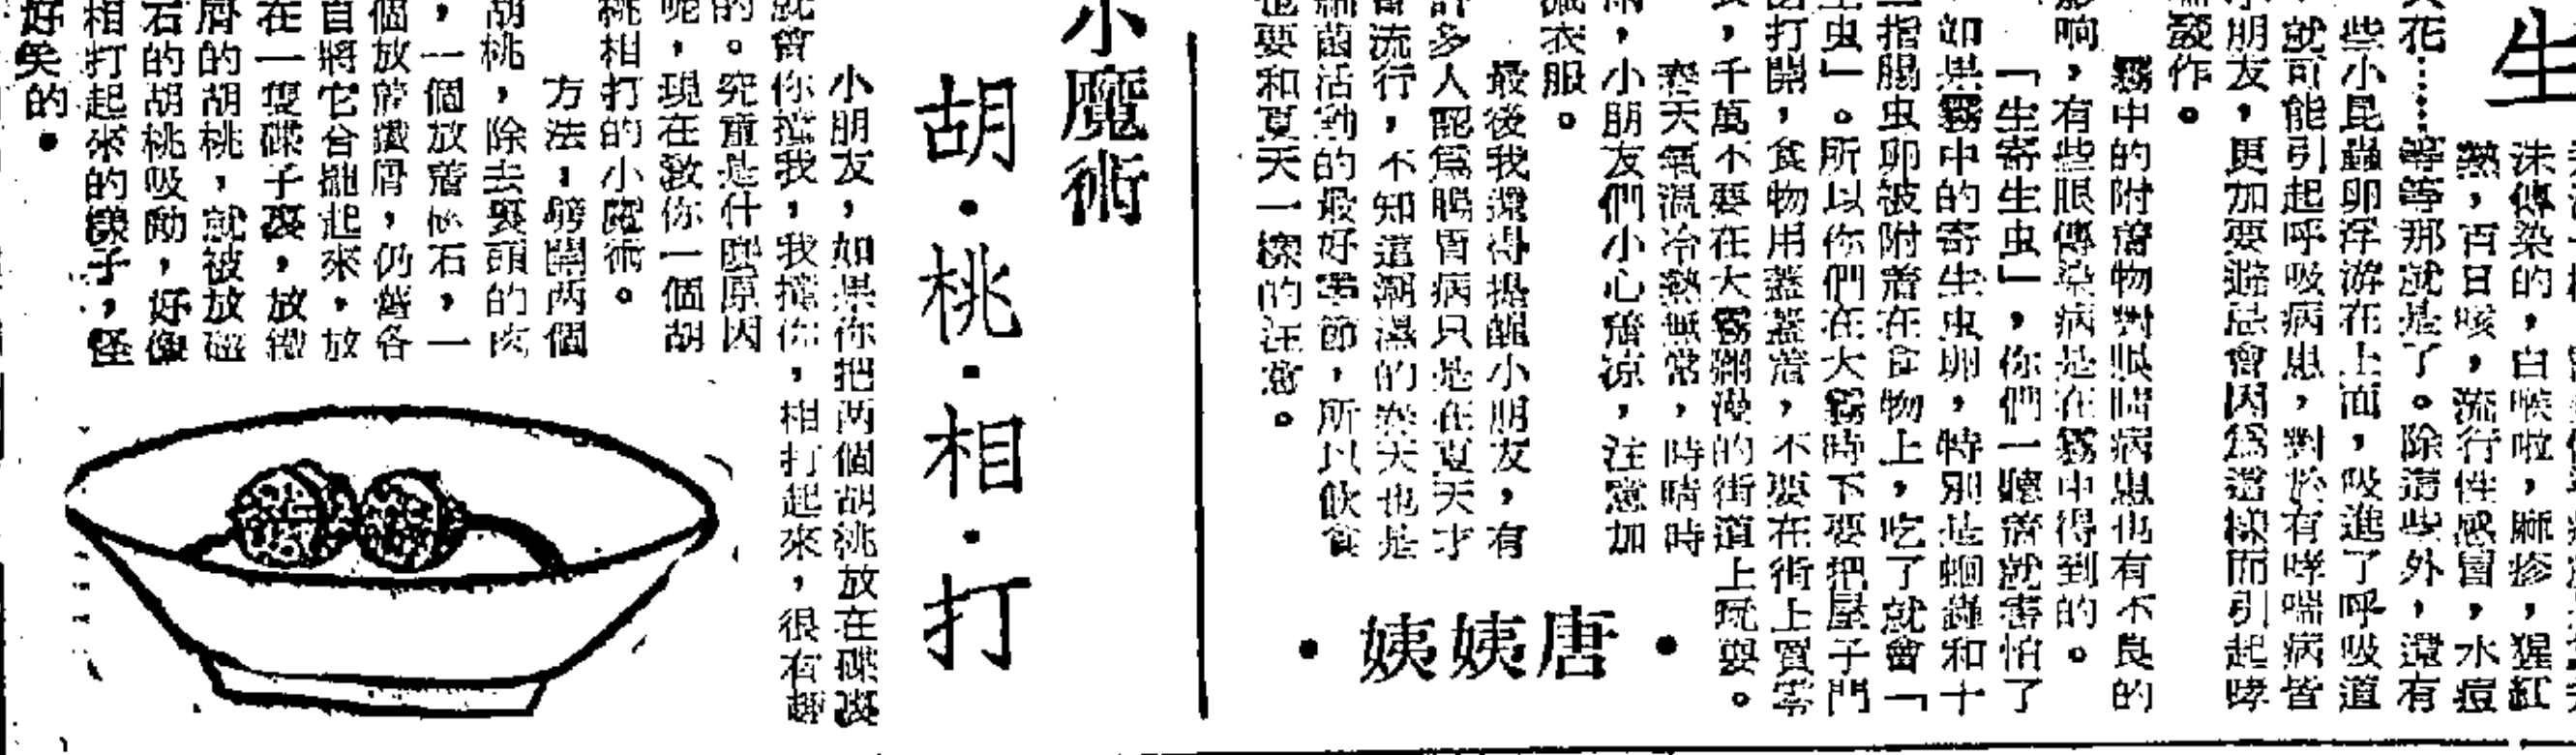 生
沫傳染的，白喉啦，麻疹，猩紅
熱，百日咳，流行性感冒，水痘
天花……等等那就是了。除這些外，還有
些小昆蟲卵浮游在上面，吸進了呼吸道
就可能引起呼吸病患，對於有哮喘病皆
小朋友，更加要避忌會因爲這樣而引起哮
喘發作。
霧中的附着物對眼睛病患也有不良的
影响，有些眼傳染病是在霧中得到的。
「生寄生虫」，你們一聽着就害怕了
如果霧中的寄生虫卵，特別是蛔蟲和十
二指腸虫卵被附着在食物上，吃了就會「
生虫」。所以你們在大霧時下要把屋子門
打開，食物用蓋蓋着，不要在街上買零
食，千萬不要在大霧瀰漫的街道上玩耍。
春天氣溫冷熱無常，時晴時
雨，小朋友們小心着凉，注意加
減衣服。
最後我還得提醒小朋友，有
許多人認爲腸胃病只是在夏天才
會流行，不知這潮濕的春天也是
細菌活動的最好季節，所以飲食
也要和夏天一樣的注意。
•唐姨姨•
小魔術
胡·桃·相·打
小朋友，如果你把两個胡桃放在碟裏
就會你撞我，我撞你，相打起來，很有趣
的。究竟是什麼原因
呢，現在敎你一個胡
桃相打的小魔術。
方法，劈開两個
胡桃，除去裏頭的肉
，一個放着磁石，一
個放着鐵屑，仍舊各
自將它合攏起來，放
在一隻碟子裏，放鐵
屑的胡桃，就被放磁
石的胡桃吸動，好像
相打起來的樣子，怪
好笑的•